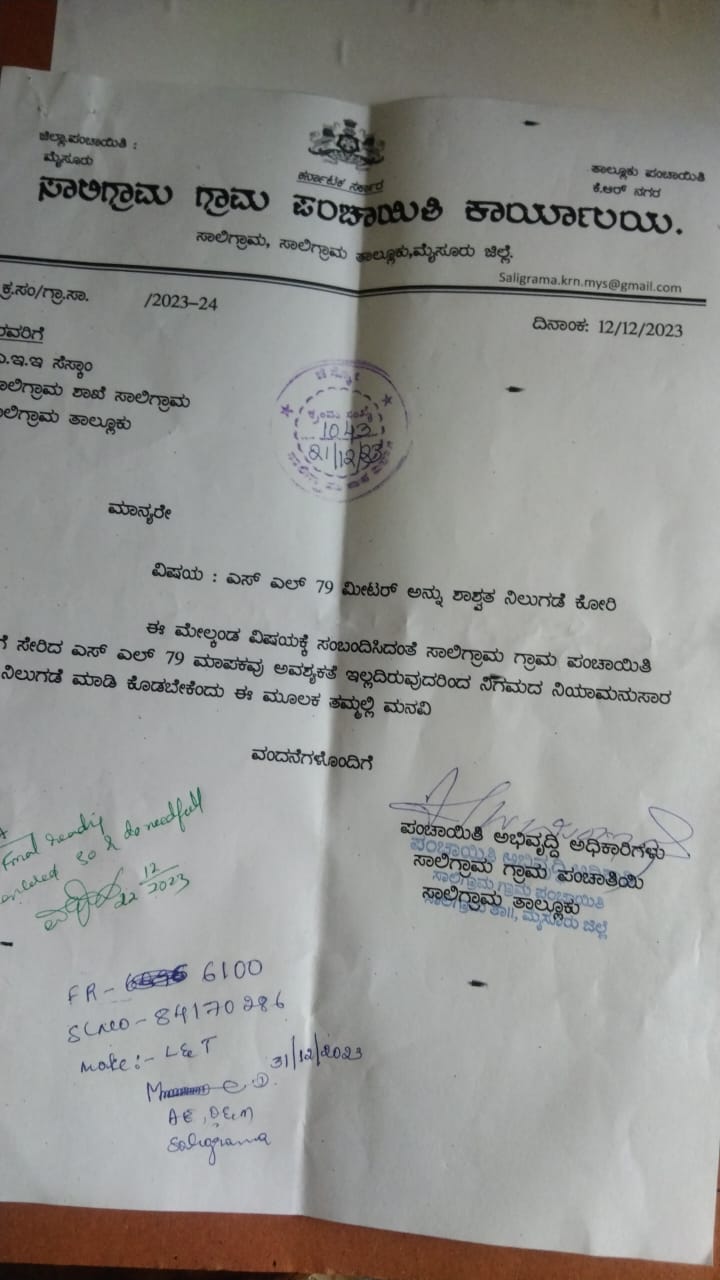 ಜಿಲ್ಲಾ ಪಂಚಾಯಿತಿ :
ಮೈಸೂರು
ಕರ್ನಾಟಕ ಸರ್ಕಾರ
ತಾಲ್ಲೂಕು ಪಂಚಾಯಿತಿ
ಕೆ.ಆರ್ ನಗರ
ಸಾಲಿಗ್ರಾಮ ಗ್ರಾಮ ಪಂಚಾಯಿತಿ ಕಾರ್ಯಾಲಯ.
ಸಾಲಿಗ್ರಾಮ, ಸಾಲಿಗ್ರಾಮ ತಾಲ್ಲೂಕು,ಮೈಸೂರು ಜಿಲ್ಲೆ.
Saligrama.krn.mys@gmail.com
ಕ್ರ.ಸಂ/ಗ್ರಾ.ಸಾ. /2023-24
ದಿನಾಂಕ: 12/12/2023
ರವರಿಗೆ
ಎ.ಇ.ಇ ಸೆಸ್ಕಾಂ
ಾಲಿಗ್ರಾಮ ಶಾಖೆ ಸಾಲಿಗ್ರಾಮ
ಾಲಿಗ್ರಾಮ ತಾಲ್ಲೂಕು
ಕ್ರಮ ಸಂಖ್ಯೆ
1043
21/12/23
ಮಾನ್ಯರೇ
ವಿಷಯ : ಎಸ್ ಎಲ್ 79 ಮೀಟರ್ ಅನ್ನು ಶಾಶ್ವತ ನಿಲುಗಡೆ ಕೋರಿ
ಈ ಮೇಲ್ಕಂಡ ವಿಷಯಕ್ಕೆ ಸಂಬಂದಿಸಿದಂತೆ ಸಾಲಿಗ್ರಾಮ ಗ್ರಾಮ ಪಂಚಾಯಿತಿ
ಗೆ ಸೇರಿದ ಎಸ್ ಎಲ್ 79 ಮಾಪಕವು ಅವಶ್ಯಕತೆ ಇಲ್ಲದಿರುವುದರಿಂದ ನಿಗಮದ ನಿಯಾಮನುಸಾರ
ನಿಲುಗಡೆ ಮಾಡಿ ಕೊಡಬೇಕೆಂದು ಈ ಮೂಲಕ ತಮ್ಮಲ್ಲಿ ಮನವಿ
ವಂದನೆಗಳೊಂದಿಗೆ
ಪಂಚಾಯಿತಿ ಅಭಿವೃದ್ಧಿ ಅಧಿಕಾರಿಗಳು
ಸಾಲಿಗ್ರಾಮ ಗ್ರಾಮ ಪಂಚಾತಿಯಿ
ಸಾಲಿಗ್ರಾಮ ತಾಲ್ಲೂಕು
ಪಂಚಾಯಿತಿ ಅಭಿವೃದ್ಧಿ
ಸಾಲಿಗ್ರಾಮ ಗ್ರಾಮ ಪಂಚಾಯಿತಿ
ಸಾಲಿಗ್ರಾಮ ತಾ||, ಮೈಸೂರು ಜಿಲ್ಲೆ
Final reading
so & do needfull
22 12/2023
FR- 6100
SLNO - 84170286
make:- L&T
31/12/2023
Saligrama